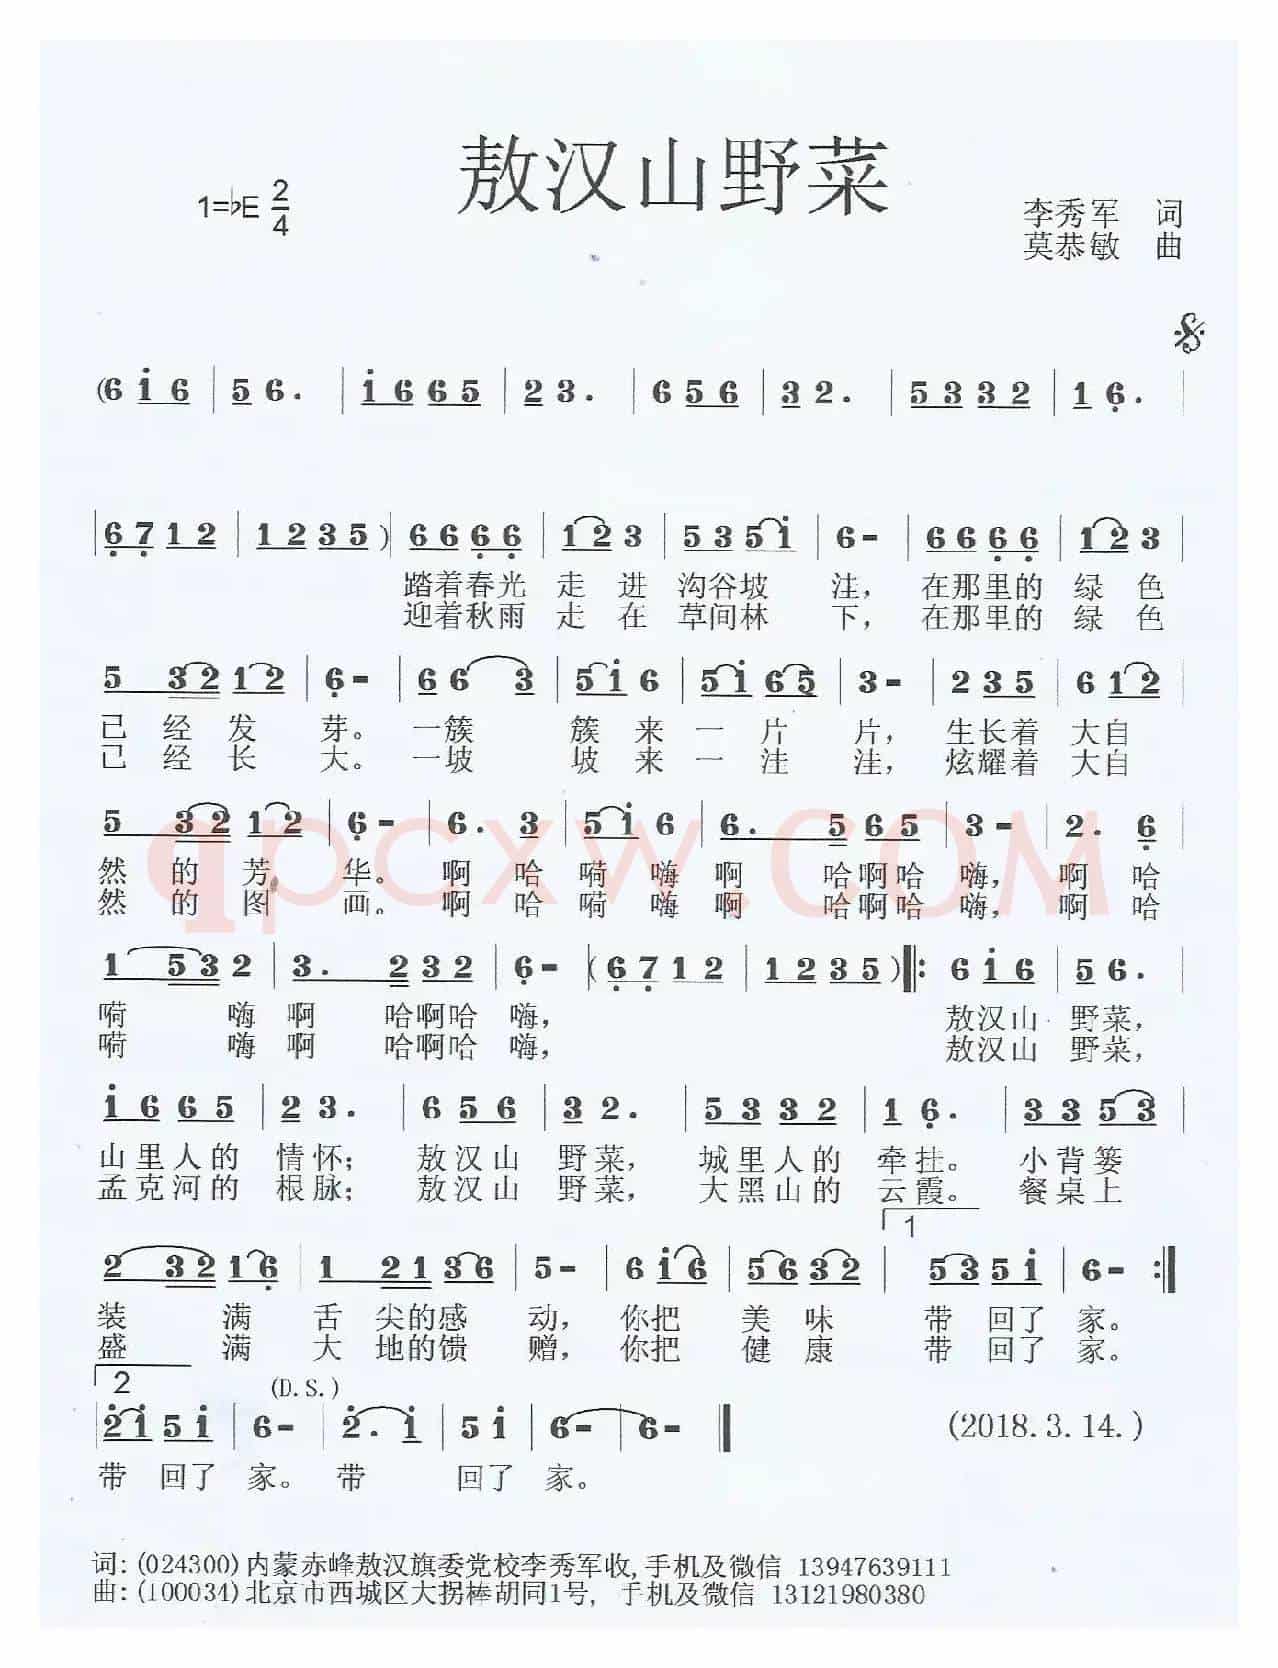 敖汉山野菜
1=♭E 2/4
李秀军 词
莫恭敏 曲
(6 i 6 | 5 6. | i 6 6 5 | 2 3. | 6 5 6 | 3 2. | 5 3 3 2 | 1 6. |
| 6 7 1 2 | 1 2 3 5 ) | 6 6 6 6 | 1 2 3 | 5 3 5 i | 6 - | 6 6 6 6 | 1 2 3 |
踏着春光 走 进 沟谷坡 洼，在那里的 绿 色
迎着秋雨 走 在 草间林 下，在那里的 绿 色
5 3 2 1 2 | 6 - | 6 6 3 | 5 i 6 | 5 i 6 5 | 3 - | 2 3 5 | 6 1 2 |
已 经 发 芽。一簇 簇 来 一 片 片，生长着 大自
已 经 长 大。一坡 坡 来 一 洼 洼，炫耀着 大自
5 3 2 1 2 | 6 - | 6. 3 | 5 i 6 | 6. 5 6 5 | 3 - | 2. 6 |
然 的 芳 华。啊 哈 嗬 嗨 啊 哈啊哈 嗨，啊 哈
然 的 图 画。啊 哈 嗬 嗨 啊 哈啊哈 嗨，啊 哈
qpcxw.COM
1 5 3 2 | 3. 2 3 2 | 6 - | ( 6 7 1 2 | 1 2 3 5 ) ‖: 6 i 6 | 5 6. |
嗬 嗨 啊 哈啊哈 嗨，敖汉山 野菜，
嗬 嗨 啊 哈啊哈 嗨，敖汉山 野菜，
i 6 6 5 | 2 3. | 6 5 6 | 3 2. | 5 3 3 2 | 1 6. | 3 3 5 3 |
山里人的 情怀；敖汉山 野菜，城里人的 牵挂。小背篓
孟克河的 根脉；敖汉山 野菜，大黑山的 云霞。餐桌上
1
2 3 2 1 6 | 1 2 1 3 6 | 5 - | 6 i 6 | 5 6 3 2 | 5 3 5 i | 6 - :‖
装 满 舌 尖的感 动，你把 美 味 带 回了 家。
盛 满 大 地的馈 赠，你把 健 康 带 回了 家。
2 (D.S.)
2 i 5 i | 6 - | 2. i | 5 i | 6 - | 6 - ‖ (2018.3.14.)
带 回了 家。带 回了 家。
词：(024300)内蒙赤峰敖汉旗委党校李秀军收,手机及微信 13947639111
曲：(100034)北京市西城区大拐棒胡同1号，手机及微信 13121980380